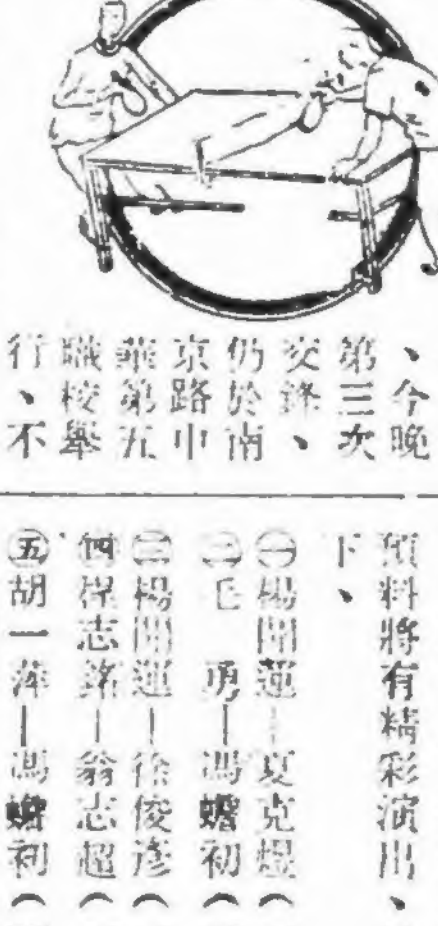 、今晚
第三次
交鋒、
仍於南
京路中
華第五
職校舉
行、不
預料將有精彩演出、
下、
㊀楊開運—夏克煜（
㊁毛　勇—馮蟾初（
㊂楊開運—徐俊彥（
㊃志銘—翁志超（
㊄胡一萍—馮蟾初（